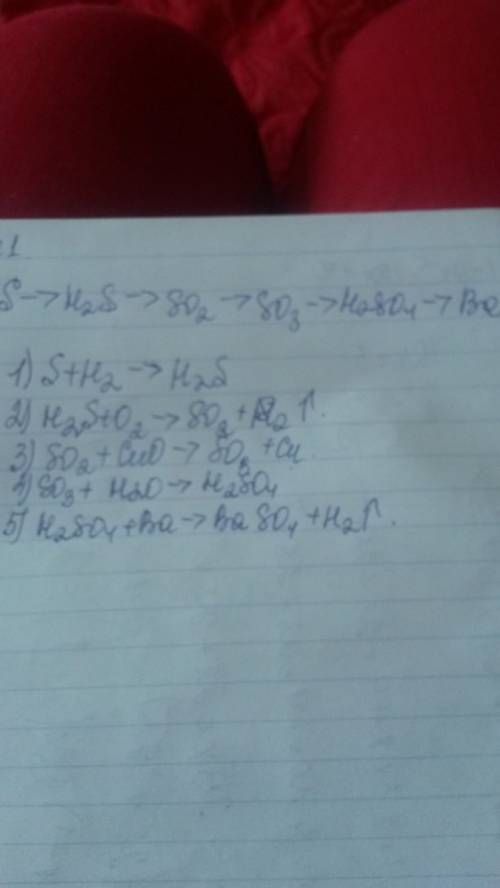 1
S → H2S → SO2 → SO3 → H2SO4 → Ba
1) S + H2 → H2S
2) H2S + O2 → SO2 + H2 ↑.
3) SO2 + CuO → SO3 + Cu
4) SO3 + H2O → H2SO4
5) H2SO4 + Ba → BaSO4 + H2↑.